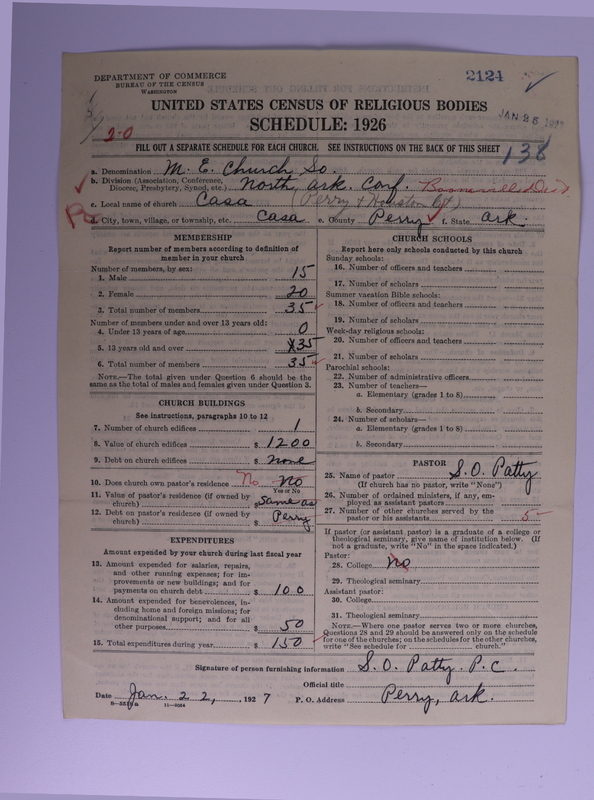 DEPARTMENT OF COMMERCE
BUREAU OF THE CENSUS
WASHINGTON
2124
UNITED STATES CENSUS OF RELIGIOUS BODIES
SCHEDULE: 1926
JAN 26 1927
2-0
FILL OUT A SEPARATE SCHEDULE FOR EACH CHURCH. SEE INSTRUCTIONS ON THE BACK OF THIS SHEET
138
a. Denomination M. E. Church So.
b. Division (Association, Conference, Diocese, Presbytery, Synod, etc.) North Ark. Conf. Booneville Dist
c. Local name of church Casa (Perry & Houston Ct)
d. City, town, village, or township, etc. Casa e. County Perry f. State Ark.
MEMBERSHIP
Report number of members according to definition of
member in your church
Number of members, by sex:
1. Male 15
2. Female 20
3. Total number of members 35
Number of members under and over 13 years old:
4. Under 13 years of age 0
5. 13 years old and over 35
6. Total number of members 35
NOTE.—The total given under Question 6 should be the
same as the total of males and females given under Question 3.
CHURCH BUILDINGS
See instructions, paragraphs 10 to 12
7. Number of church edifices 1
8. Value of church edifices $ 1200
9. Debt on church edifices $ none
10. Does church own pastor's residence No No
Yes or No
11. Value of pastor's residence (if owned by
church) $ Same as
12. Debt on pastor's residence (if owned by
church) $ Perry
EXPENDITURES
Amount expended by your church during last fiscal year
13. Amount expended for salaries, repairs,
and other running expenses; for im-
provements or new buildings; and for
payments on church debt $ 100
14. Amount expended for benevolences, in-
cluding home and foreign missions; for
denominational support; and for all
other purposes $ 50
15. Total expenditures during year $ 150
CHURCH SCHOOLS
Report here only schools conducted by this church
Sunday schools:
16. Number of officers and teachers
17. Number of scholars
Summer vacation Bible schools:
18. Number of officers and teachers
19. Number of scholars
Week-day religious schools:
20. Number of officers and teachers
21. Number of scholars
Parochial schools:
22. Number of administrative officers
23. Number of teachers—
a. Elementary (grades 1 to 8)
b. Secondary
24. Number of scholars—
a. Elementary (grades 1 to 8)
b. Secondary
PASTOR
25. Name of pastor S. O. Patty
(If church has no pastor, write "None")
26. Number of ordained ministers, if any, em-
ployed as assistant pastors
27. Number of other churches served by the
pastor or his assistants 5
If pastor (or assistant pastor) is a graduate of a college or
theological seminary, give name of institution below. (If
not a graduate, write "No" in the space indicated.)
Pastor:
28. College No
29. Theological seminary
Assistant pastor:
30. College
31. Theological seminary
NOTE.—Where one pastor serves two or more churches,
Questions 28 and 29 should be answered only on the schedule
for one of the churches; on the schedules for the other churches,
write "See schedule for church."
Signature of person furnishing information S. O. Patty. P.C.
Official title
Date Jan. 22, 1927 P. O. Address Perry, Ark.
11—9034